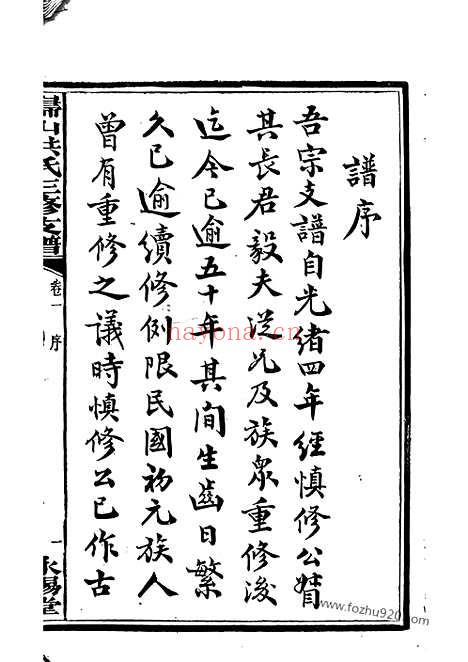 譜序
吾宗支譜自光緒四年經慎修公揹
其長君毅夫從兄及族衆重修後
迄今已逾五十年其間生齒日繁
久已逾續修例限民國初元族人
曾有重修之議時慎修公已作古
歸山洪氏三修支譜
卷一
序
一
永錫堂
hayona.cn
www.fozhu920.com